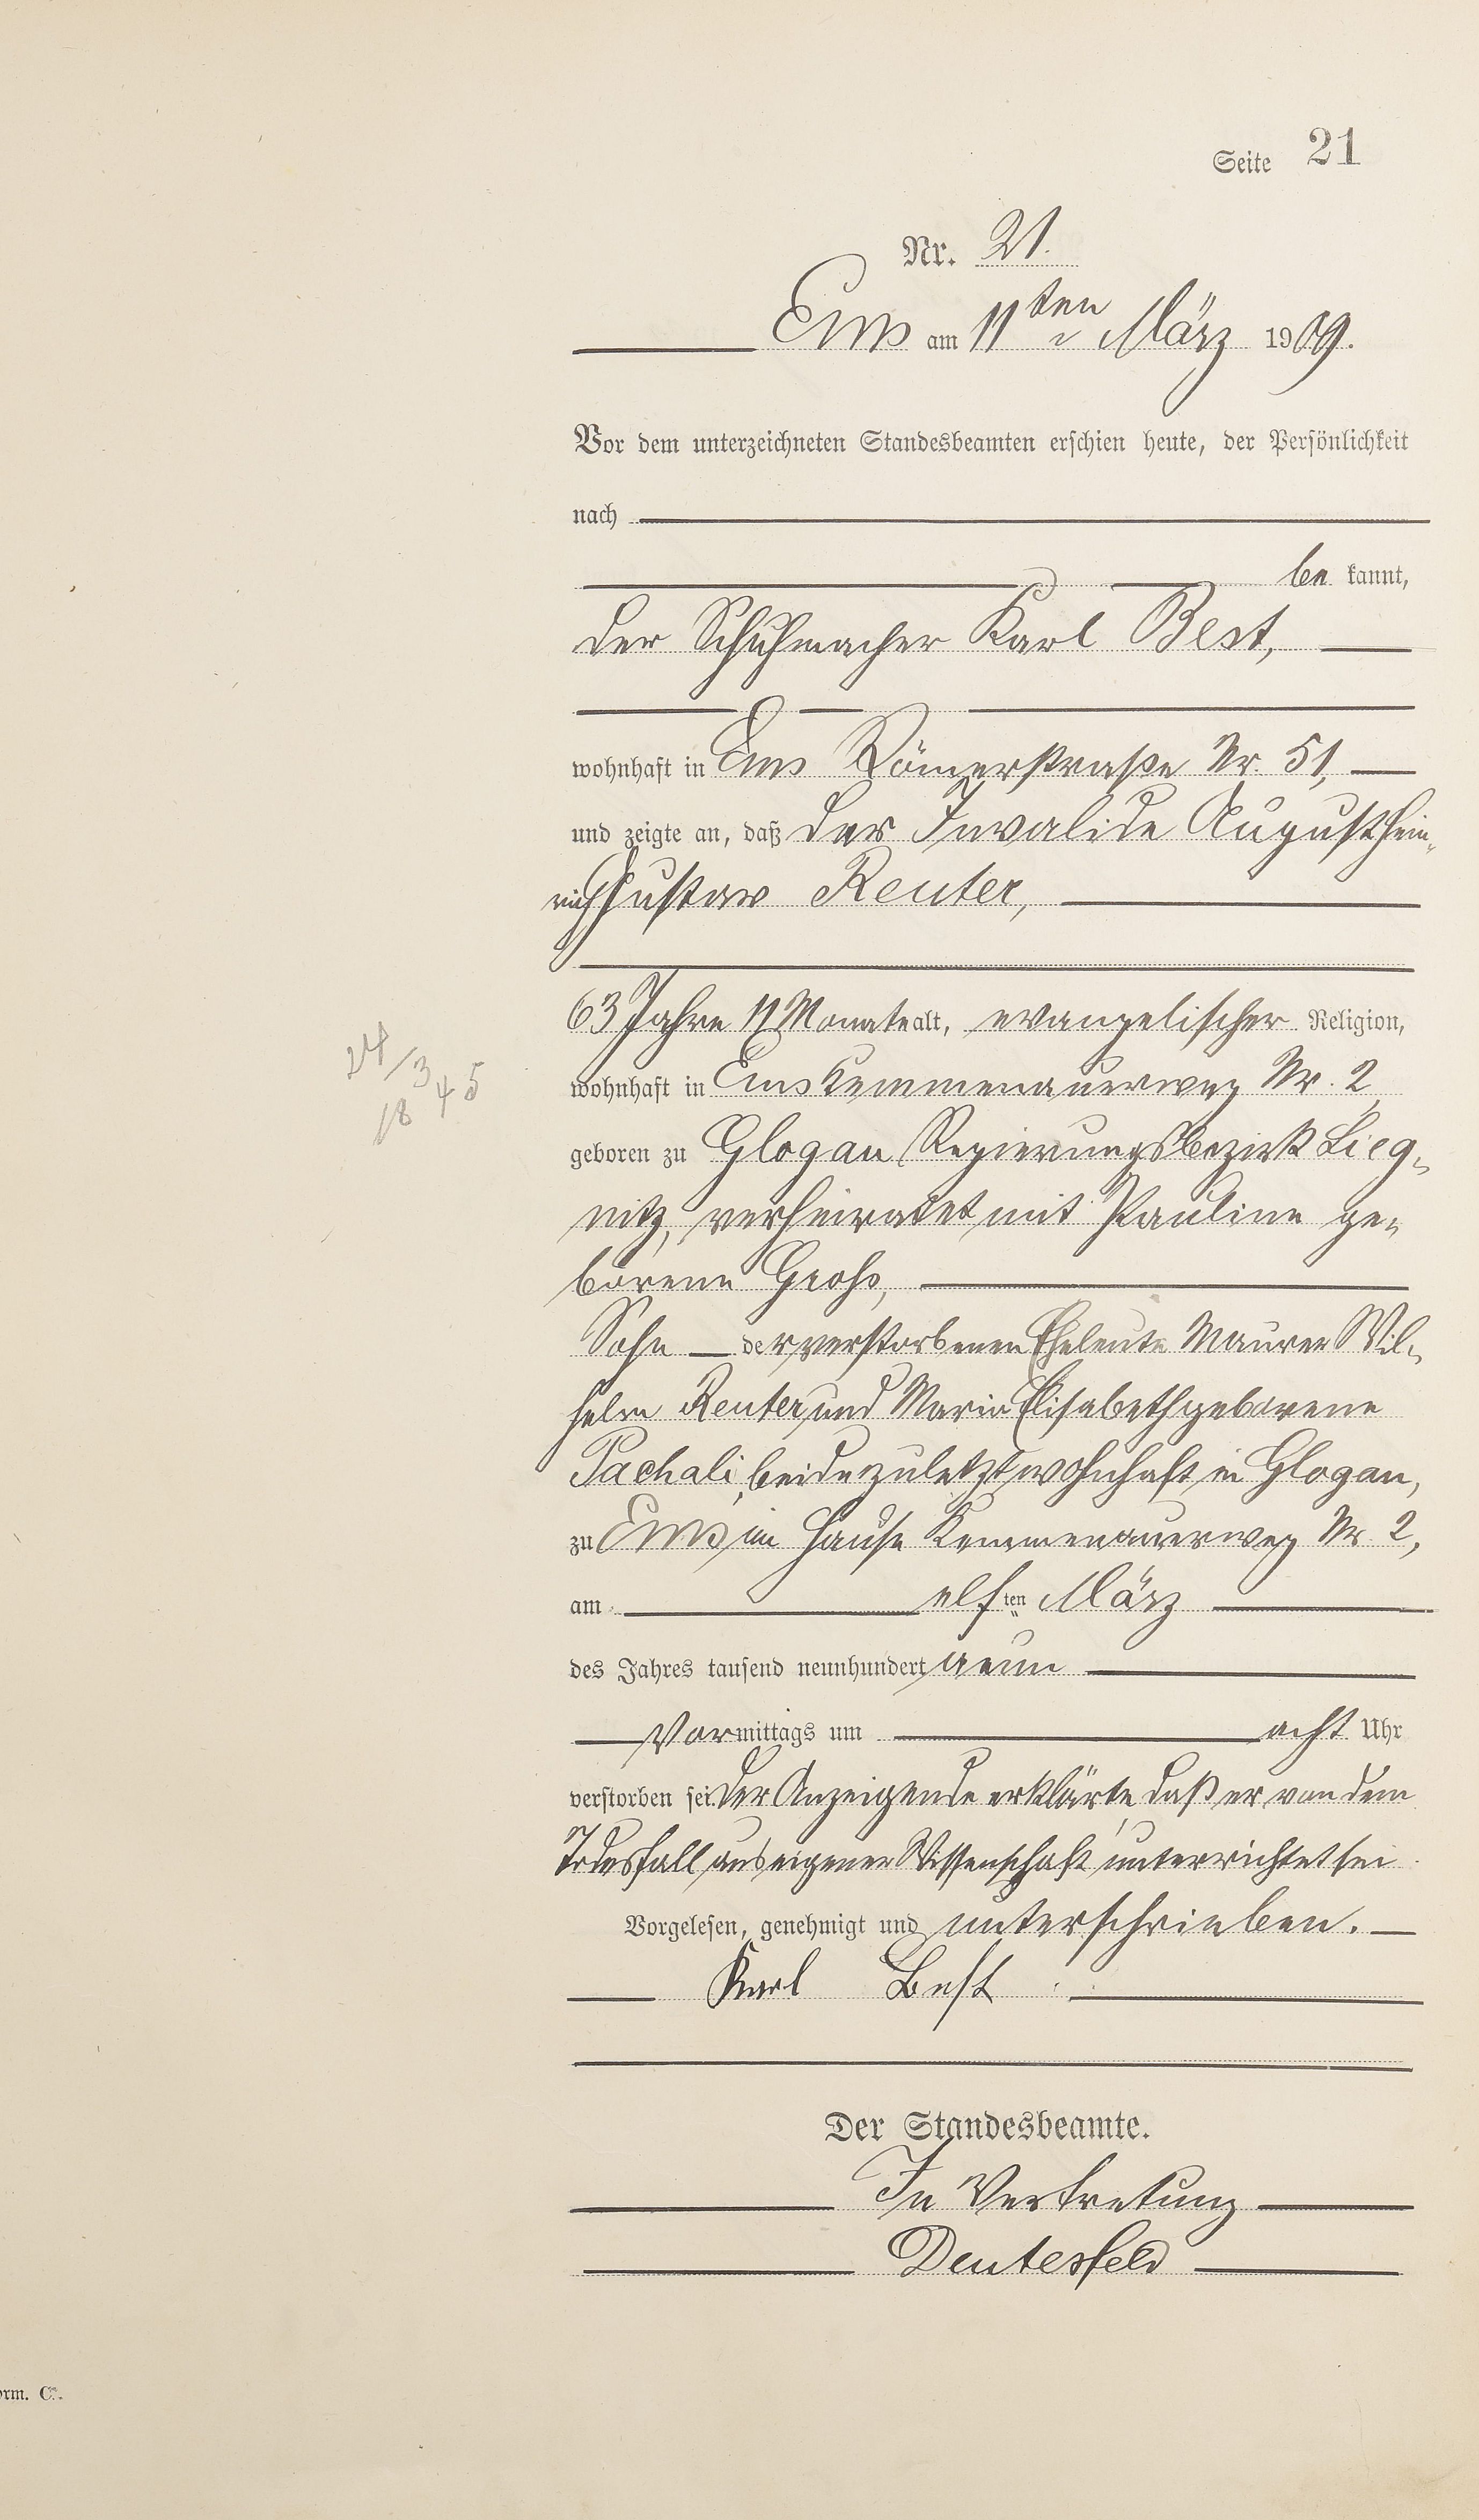 Seite 21
Nr. 21.
Ems am 11ten März 1909.
Vor dem unterzeichneten Standesbeamten erschien heute, der Persönlichkeit
nach
be kannt,
der Schuhmacher Karl Best,
wohnhaft in Ems Römerstraße Nr. 51,
und zeigte an, daß der Invalide August Hein-
rich Gustav Reuter,
63 Jahre 11 Monate alt, evangelischer Religion,
24/3
18 45
wohnhaft in Ems Kemmenauerweg Nr. 2
geboren zu Glogau Regierungsbezirk Lieg-
nitz, verheiratet mit Pauline ge-
borene Groß,
Sohn der verstorbenen Eheleute Maurer Wil-
helm Reuter und Maria Elisabeth geborene
Pachali, beide zuletzt wohnhaft in Glogau,
zu Ems im Hause Kemmenauerweg Nr. 2,
am elf ten März
des Jahres tausend neunhundert neun
Vormittags um acht Uhr
verstorben sei. Der Anzeigende erklärte, daß er von dem
Todesfall aus eigener Wissenschaft unterrichtet sei
Vorgelesen, genehmigt und unterschrieben.
Karl Best
Der Standesbeamte.
In Vertretung
Deutesfeld
orm. C.